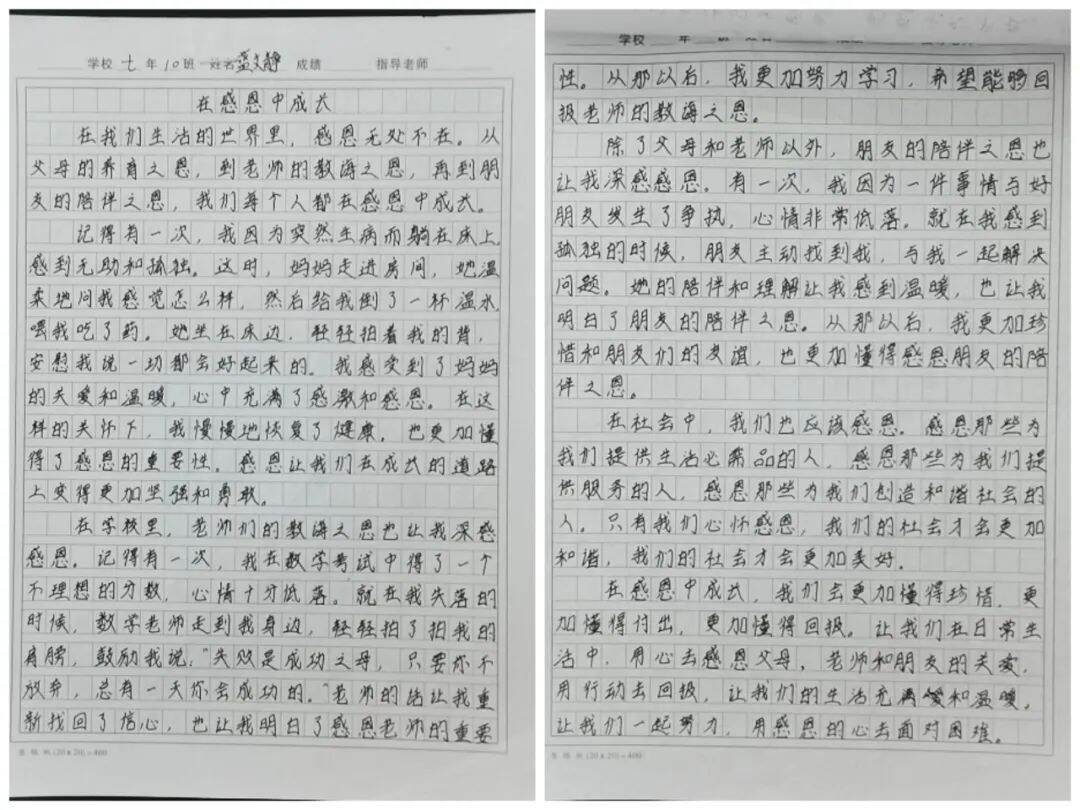 学校 七 年 10 班 姓名 蓝文静 成绩 指导老师
在感恩中成长
在我们生活的世界里，感恩无处不在。从
父母的养育之恩，到老师的教诲之恩，再到朋
友的陪伴之恩，我们每个人都在感恩中成长。
记得有一次，我因为突然生病而躺在床上，
感到无助和孤独。这时，妈妈走进房间，她温
柔地问我感觉怎么样，然后给我倒了一杯温水，
喂我吃了药。她坐在床边，轻轻拍着我的背，
安慰我说一切都会好起来的。我感受到了妈妈
的关爱和温暖，心中充满了感激和感恩。在这
样的关怀下，我慢慢地恢复了健康，也更加懂
得了感恩的重要性。感恩让我们在成长的道路
上变得更加坚强和勇敢。
在学校里，老师们的教诲之恩也让我深感
感恩。记得有一次，我在数学考试中得了一个
不理想的分数，心情十分低落。就在我失落的
时候，数学老师走到我身边，轻轻拍了拍我的
肩膀，鼓励我说，“失败是成功之母，只要你不
放弃，总有一天你会成功的。”老师的话让我重
新找回了信心，也让我明白了感恩老师的重要
(20×20)=400
学校 年 班
性。从那以后，我更加努力学习，希望能够回
报老师的教诲之恩。
除了父母和老师以外，朋友的陪伴之恩也
让我深感感恩。有一次，我因为一件事情与好
朋友发生了争执，心情非常低落。就在我感到
孤独的时候，朋友主动找到我，与我一起解决
问题。她的陪伴和理解让我感到温暖，也让我
明白了朋友的陪伴之恩。从那以后，我更加珍
惜和朋友们的友谊，也更加懂得感恩朋友的陪
伴之恩。
在社会中，我们也应该感恩。感恩那些为
我们提供生活必需品的人，感恩那些为我们提
供服务的人，感恩那些为我们创造和谐社会的
人。只有我们心怀感恩，我们的社会才会更加
和谐，我们的社会才会更加美好。
在感恩中成长，我们会更加懂得珍惜，更
加懂得付出，更加懂得回报。让我们在日常生
活中，用心去感恩父母、老师和朋友的关爱，
用行动去回报，让我们的生活充满爱和温暖。
让我们一起努力，用感恩的心去面对困难。
(20×20)=400